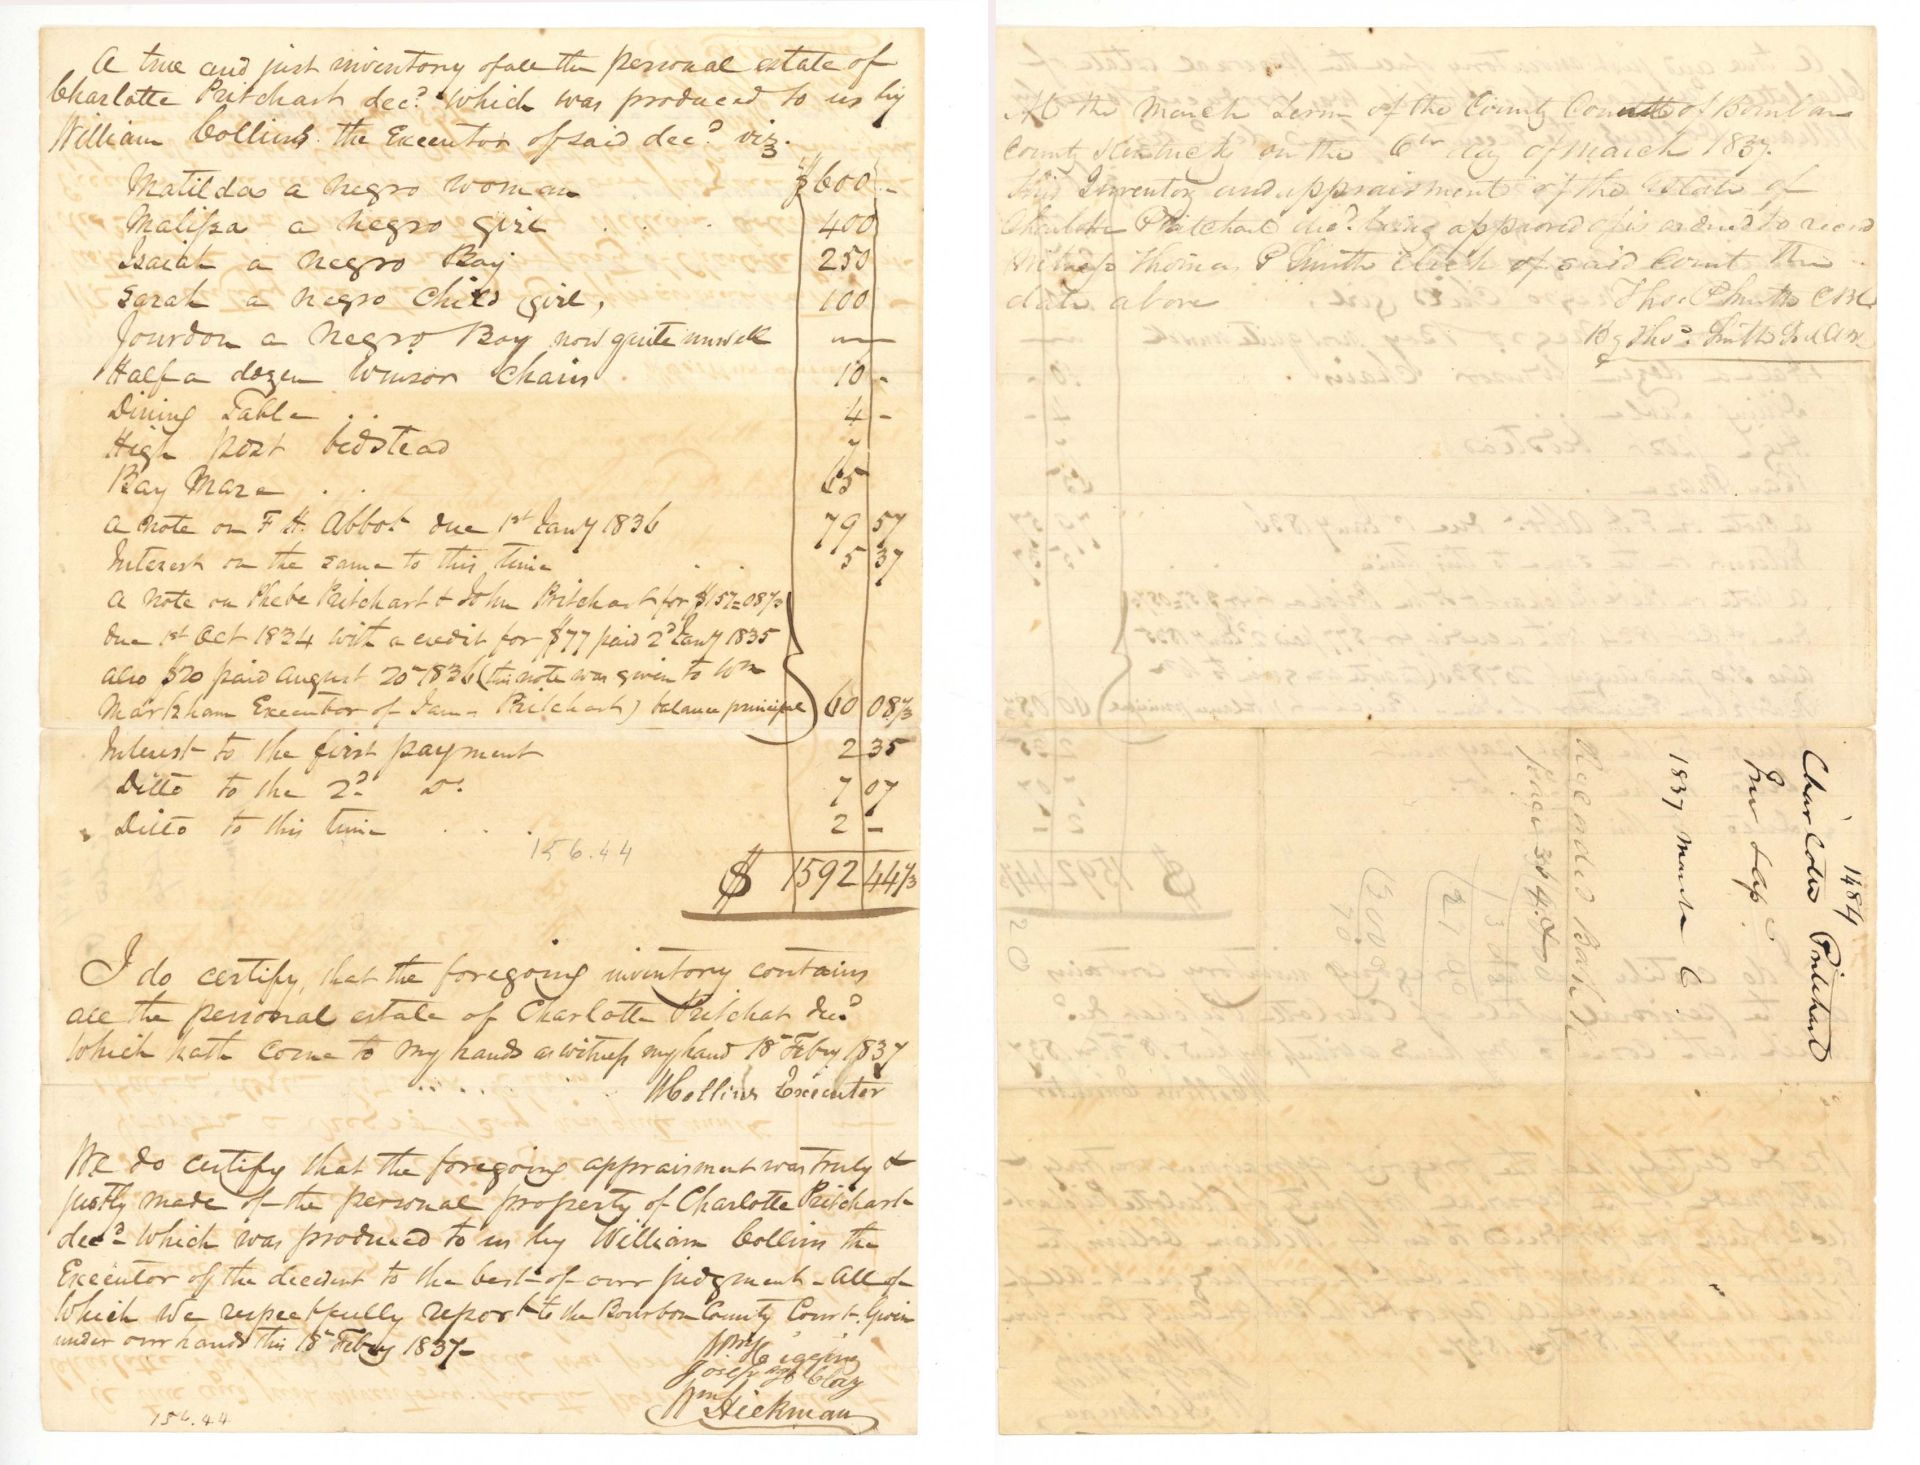 A true and just inventory of all the personal estate of
Charlotte Pritchart decd. which was produced to us by
William Collins the Executor of said decd. viz.
Matilda a negro woman $600 –
Malissa a negro girl . . . . 400
Isaiah a negro Boy 250
Sarah a negro child girl, 100
Jourdon a negro Boy now quite unwell —
Half a dozen winsor chairs 10 –
Dining Table . . 4 –
High post bedstead 7
Bay Mare . . 65
A note on F H. Abbot due 1st Jany 1836 79 57
Interest on the same to this time . . 5 37
A note on Phebe Pritchart & John Pritchart for $157=08 1/3
due 1st Oct 1834 with a credit for $77 paid 2d Jany 1835
also $20 paid August 20 1836 (this note was given to Wm
Markham Executor of James Pritchart) balance principle 60 08 1/3
Interest to the first payment 2 35
Ditto to the 2d. Do. 7 07
Ditto to this time . . . 2 –
156.44
$ 1592 44 1/3
I do certify, that the foregoing inventory contains
all the personal estate of Charlotte Pritchat decd
which hath come to my hands as witness my hand 18th Febry 1837
W Collins Executor
We do certify that the foregoing appraisment was truly &
justly made of the personal property of Charlotte Pritchart
decd – which was produced to us by William Collins the
Executor of the decedent to the best of our judgment – All of
which we respectfully report to the Bourbon County Court. Given
under our hands this 18th Febry 1837–
Wm Higgins
Joseph Clay
Wm Hickman
156.44
At the March Term of the County Court of Bourbon
County Kentucky on the 6th day of March 1837.
This Inventory and appraisment of the Estate of
Charlotte Pritchart decd. being approved of is ordered to record
Witness Thomas P Smith Clerk of said Court the
date above Thos P Smith CBC
By Thos. Smith
1484
Charlotte Pritchard
Inv & Ap.
1837 March C.
Recorded Book K
page
20